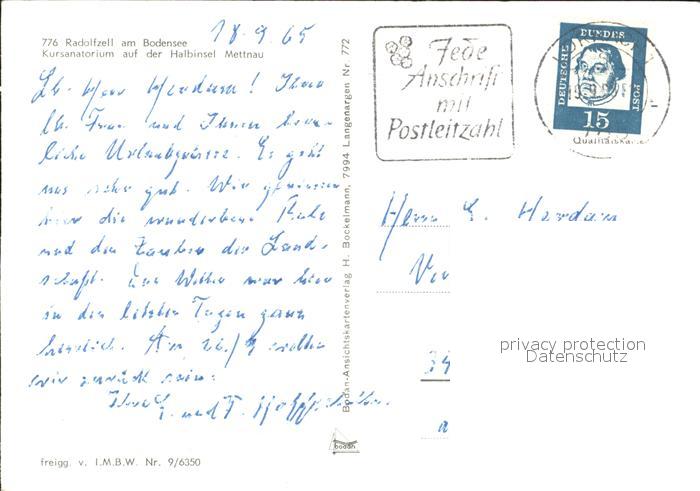 776 Radolfzell am Bodensee
Kursanatorium auf der Halbinsel Mettnau
18.9.65
Lb. Herr Hordam! Ihrer
lb. Frau und Ihnen herz-
liche Urlaubsgrüsse. Es geht
uns sehr gut. Wir geniessen
hier die wunderbare Ruhe
und den Zauber der Land-
schaft. Das Wetter war hier
in den letzten Tagen ganz
herrlich. Am 26./9 wollen
wir zurück sein.
und
freigg. v. I.M.B.W. Nr. 9/6350
Bodan-Ansichtskartenverlag H. Bockelmann, 7994 Langenargen Nr 772
bodan
Jede
Anschrift
mit
Postleitzahl
DEUTSCHE
BUNDES
POST
15
Qualitätskarte
Herrn
privacy protection
Datenschutz